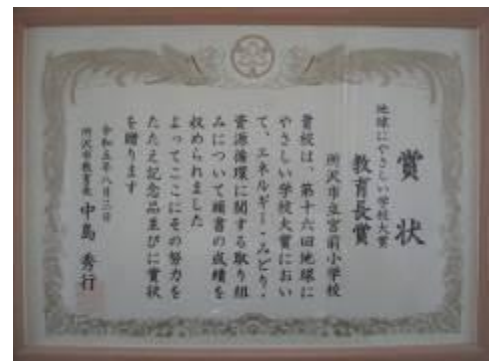 賞状
地球にやさしい学校大賞
教育長賞
所沢市立宮前小学校
貴校は、第十六回地球に
やさしい学校大賞におい
て、エネルギー・みどり・
資源循環に関する取り組
みについて頭書の成績を
収められました
よってここにその努力を
たたえ記念品並びに賞状
を贈ります
令和五年八月二日
所沢市教育長 中島秀行